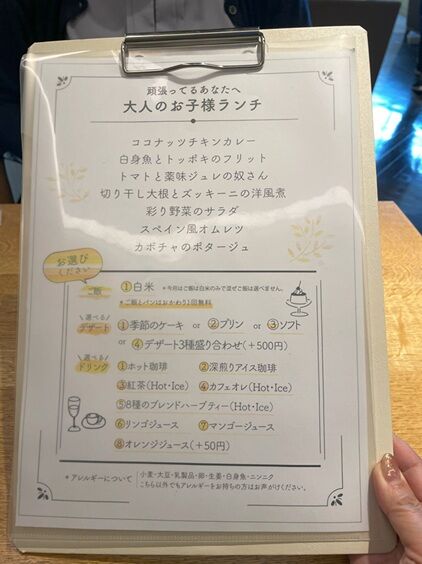 頑張ってるあなたへ
大人のお子様ランチ
ココナッツチキンカレー
白身魚とトッポキのフリット
トマトと薬味ジュレの奴さん
切り干し大根とズッキーニの洋風煮
彩り野菜のサラダ
スペイン風オムレツ
カボチャのポタージュ
お選び
ください
ご飯 ①白米 *今月はご飯は白米のみで混ぜご飯は選べません。
*ご飯とパンはおかわり1回無料
\選べる/
デザート ①季節のケーキ or ②プリン or ③ソフト
or ④デザート3種盛り合わせ(+500円)
\選べる/
ドリンク ①ホット珈琲 ②深煎りアイス珈琲
③紅茶(Hot・Ice) ④カフェオレ(Hot・Ice)
⑤8種のブレンドハーブティー(Hot・Ice)
⑥リンゴジュース ⑦マンゴージュース
⑧オレンジジュース(+50円)
*アレルギーについて 小麦・大豆・乳製品・卵・生姜・白身魚・ニンニク
こちら以外でもアレルギーをお持ちの方はお声がけください。